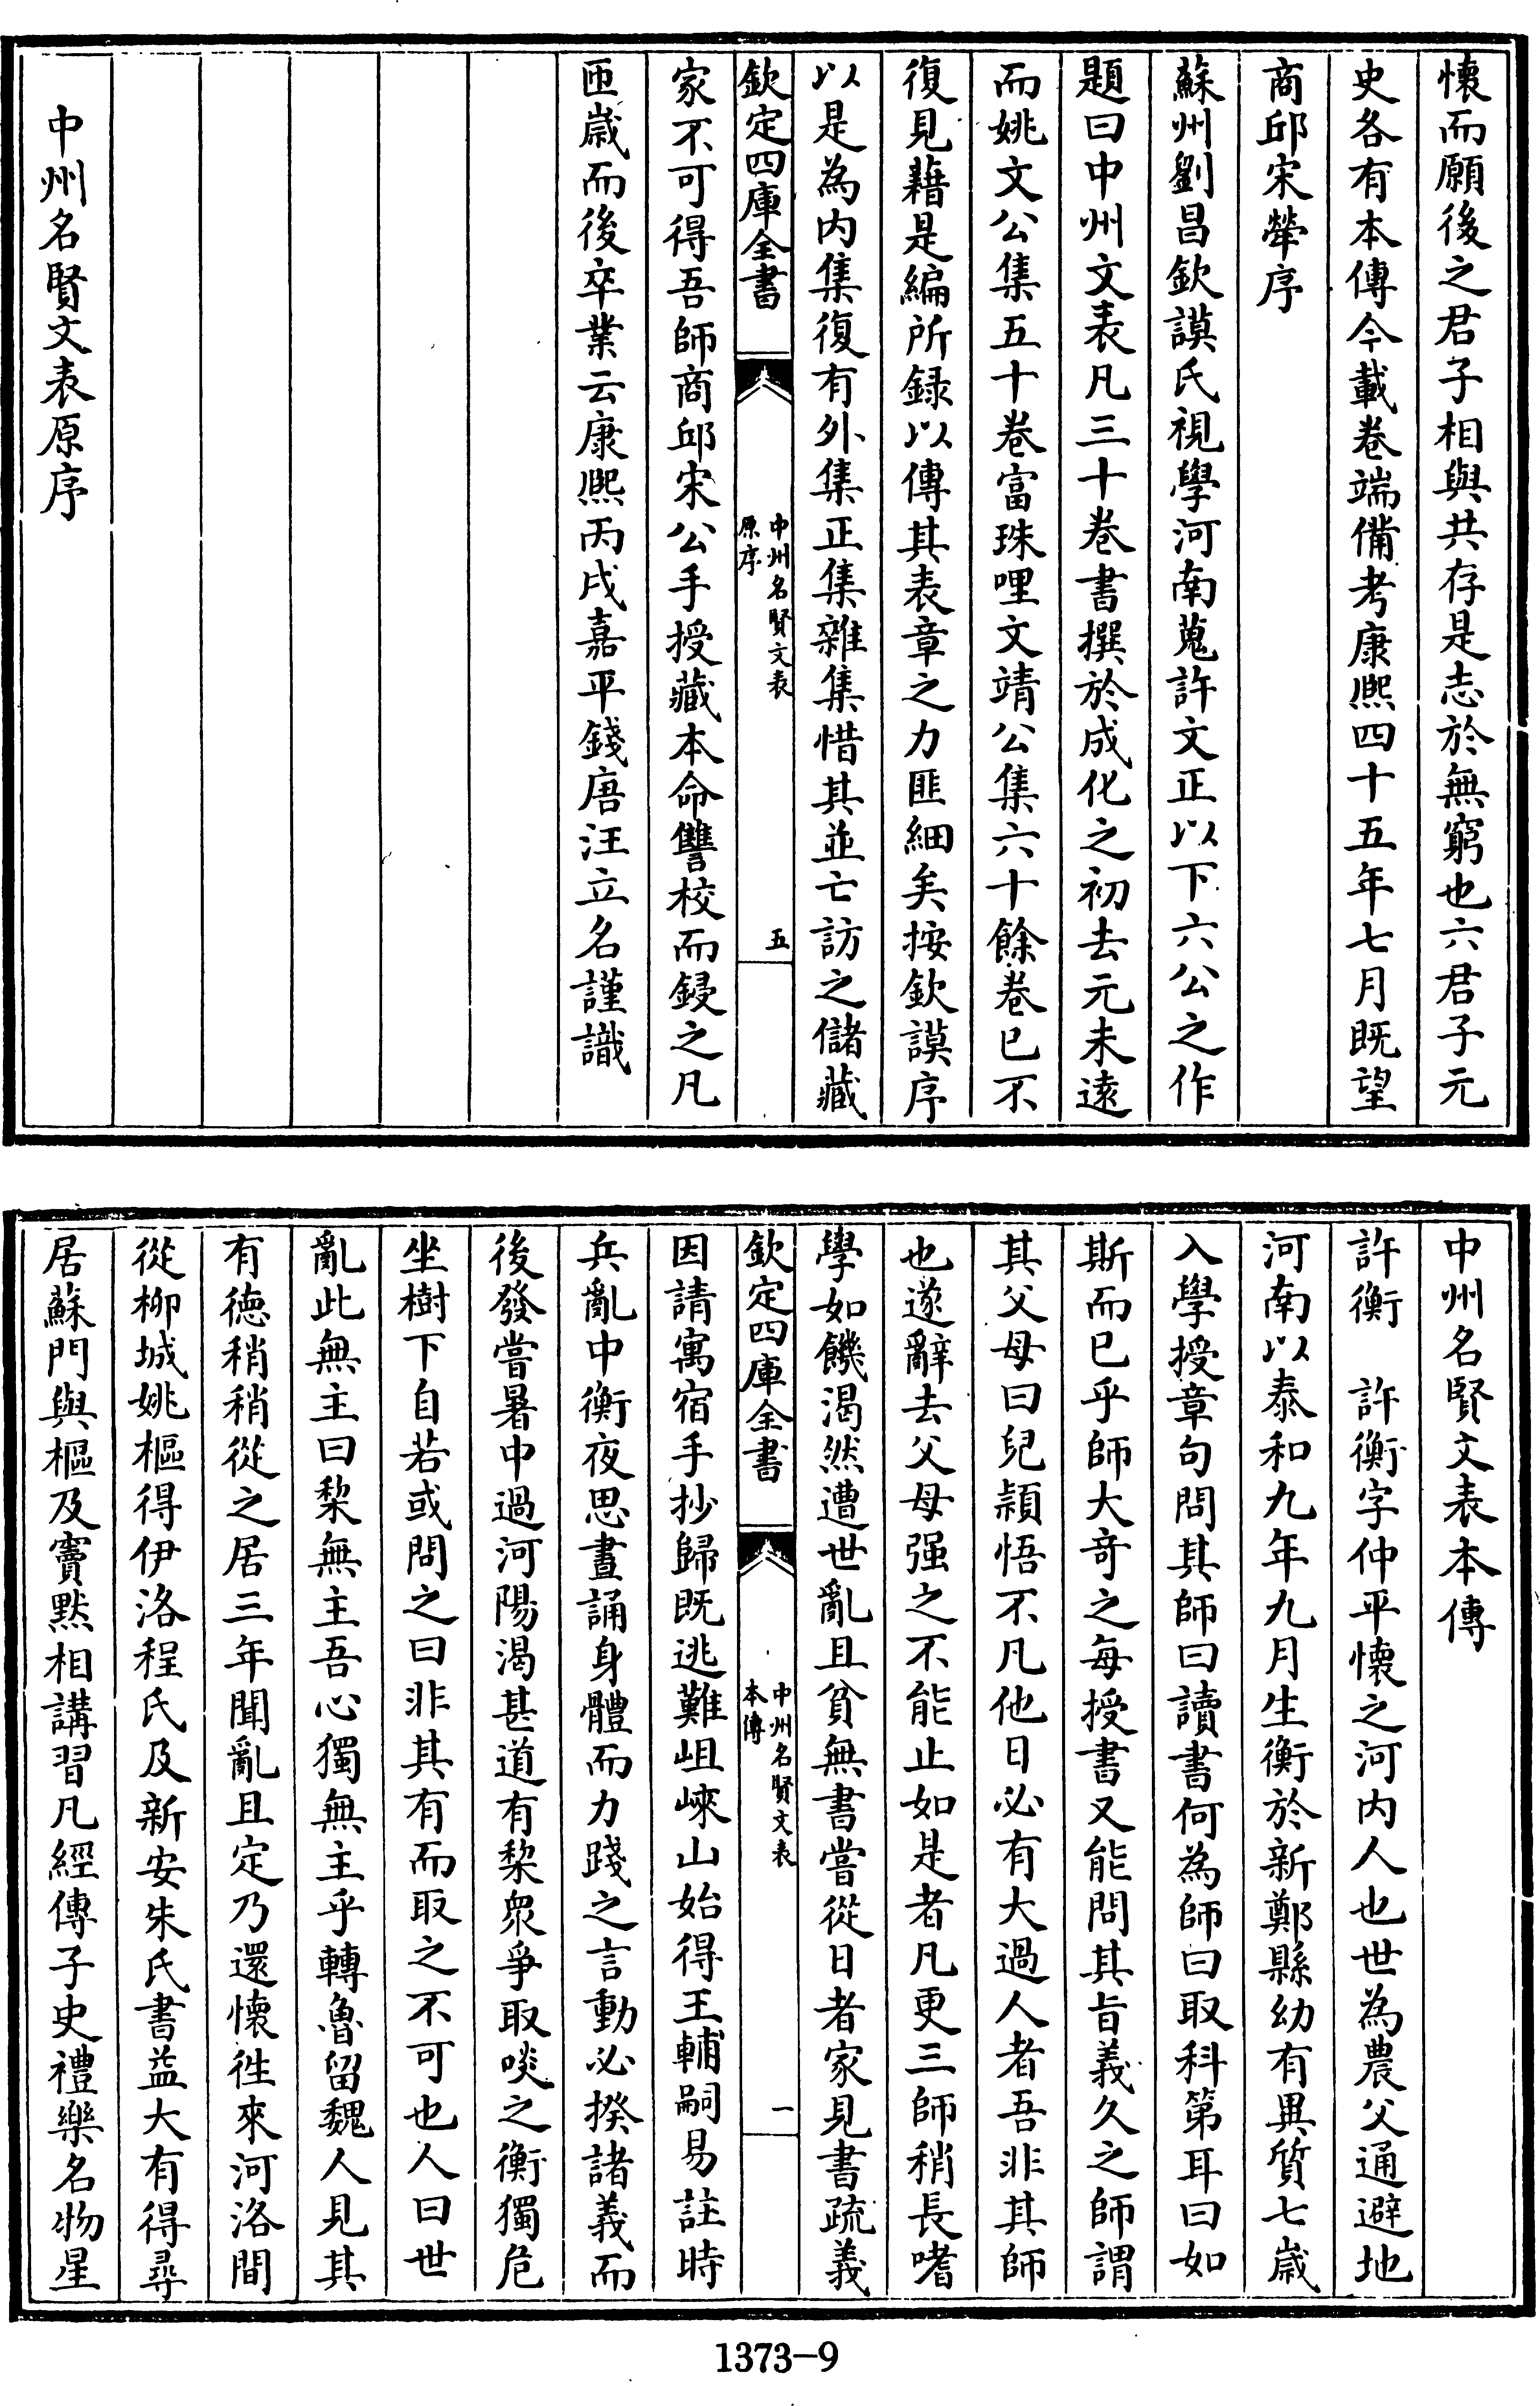 懷而願後之君子相與共存是志於無窮也六君子元
史各有本傳今載卷端備考康熙四十五年七月既望
商邱宋犖序
蘇州劉昌欽謨氏視學河南蒐許文正以下六公之作
題曰中州文表凡三十卷書撰於成化之初去元未遠
而姚文公集五十卷富珠哩文靖公集六十餘卷已不
復見藉是編所録以傳其表章之力匪細矣按欽謨序
以是為内集復有外集正集雜集惜其並亡訪之儲藏
欽定四庫全書
中州名賢文表
原序
五
家不可得吾師商邱宋公手授藏本命讐校而鋟之凡
匝歲而後卒業云康熙丙戌嘉平錢唐汪立名謹識
中州名賢文表原序
中州名賢文表本傳
許衡　許衡字仲平懷之河内人也世為農父通避地
河南以泰和九年九月生衡於新鄭縣幼有異質七歲
入學授章句問其師曰讀書何為師曰取科第耳曰如
斯而已乎師大奇之每授書又能問其旨義久之師謂
其父母曰兒穎悟不凡他日必有大過人者吾非其師
也遂辭去父母强之不能止如是者凡更三師稍長嗜
學如饑渴然遭世亂且貧無書嘗從日者家見書疏義
欽定四庫全書
中州名賢文表
本傳
一
因請寓宿手抄歸既逃難岨崍山始得王輔嗣易註時
兵亂中衡夜思晝誦身體而力踐之言動必揆諸義而
後發嘗暑中過河陽渴甚道有棃衆爭取啖之衡獨危
坐樹下自若或問之曰非其有而取之不可也人曰世
亂此無主曰棃無主吾心獨無主乎轉魯留魏人見其
有德稍稍從之居三年聞亂且定乃還懷徃來河洛間
從柳城姚樞得伊洛程氏及新安朱氏書益大有得尋
居蘇門與樞及竇黙相講習凡經傳子史禮樂名物星
1373-9